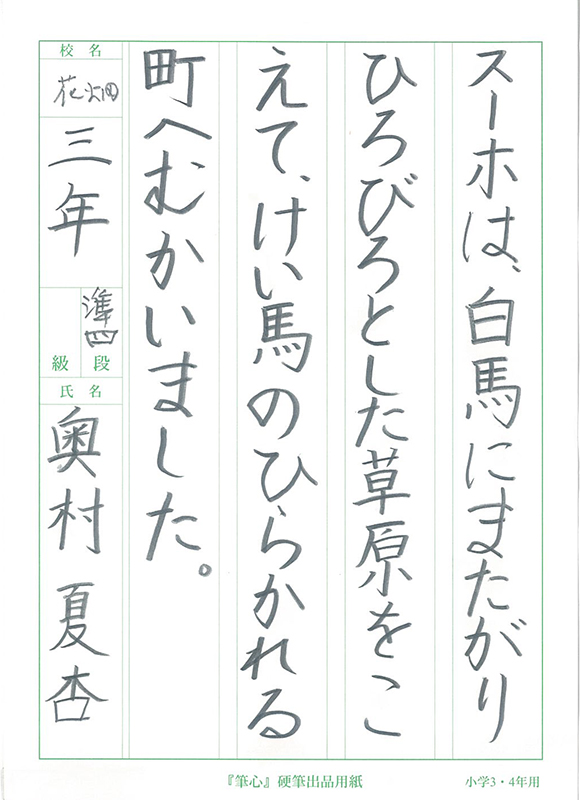 スーホは、白馬にまたがり
ひろびろとした草原をこ
えて、けい馬のひらかれる
町へむかいました。
校名
花畑
三年
準四
段
級
氏名
奥村 夏杏
『筆心』硬筆出品用紙
小学3・4年用